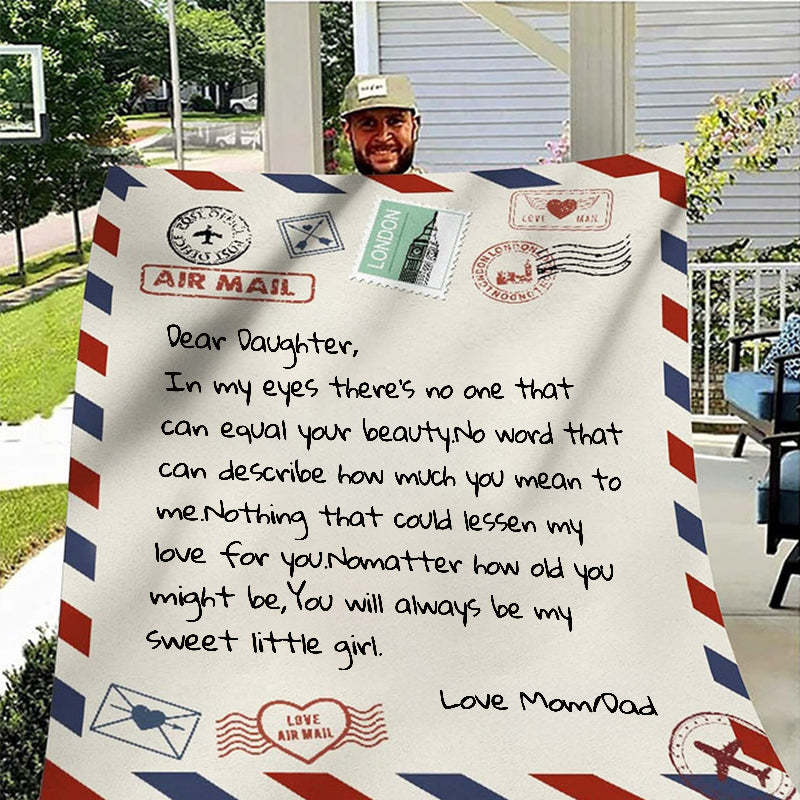 POST OFFICE
POST OFFICE
AIR MAIL
LONDON
LOVE MAIL
LONDON LONDON
LONDON
Dear Daughter,
In my eyes there's no one that
can equal your beauty.No word that
can describe how much you mean to
me.Nothing that could lessen my
love for you.Nomatter how old you
might be,You will always be my
sweet little girl.
Love Mom/Dad
LOVE
AIR MAIL